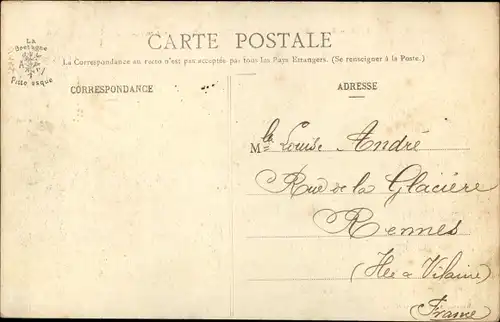 La
Bretagne
Pittoresque
CARTE POSTALE
La Correspondance au recto n'est pas acceptée par tous les Pays Etrangers. (Se renseigner à la Poste.)
CORRESPONDANCE
ADRESSE
Mlle Louise André
Rue de la Glacière
Rennes
(Ille & Vilaine)
France